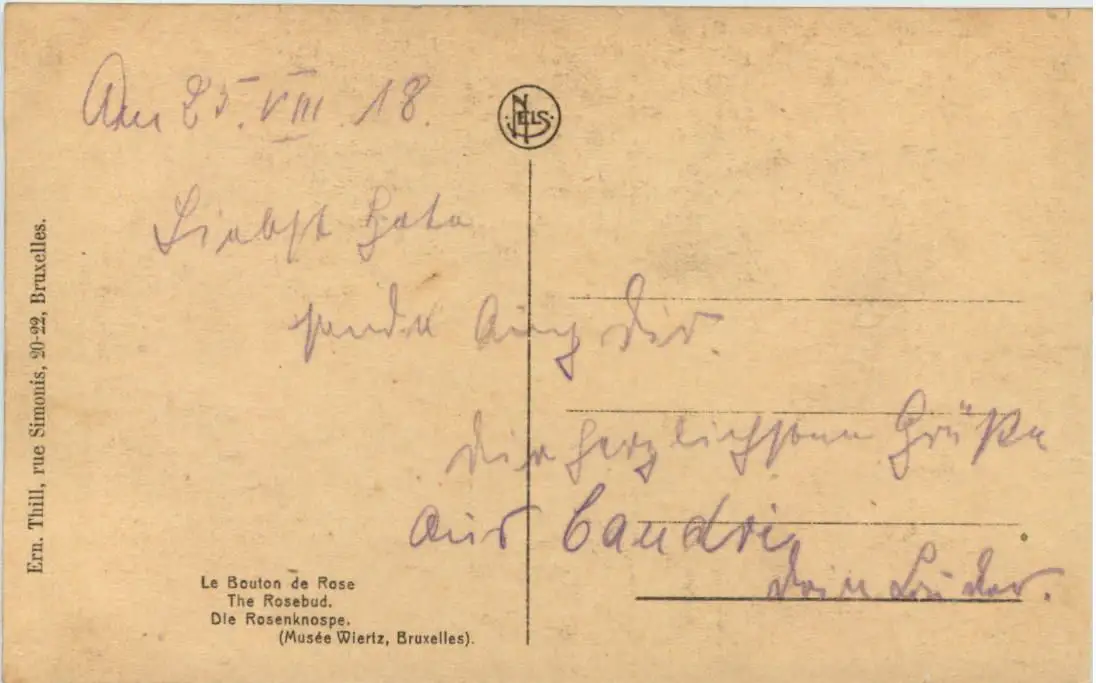 Am 25. VIII. 18.
NELS
Liebste
sende Dir
die herzlichsten Grüße
aus Caudri
Dein Bruder.
Le Bouton de Rose
The Rosebud.
Die Rosenknospe.
(Musée Wiertz, Bruxelles).
Ern. Thill, rue Simonis, 20-22, Bruxelles.